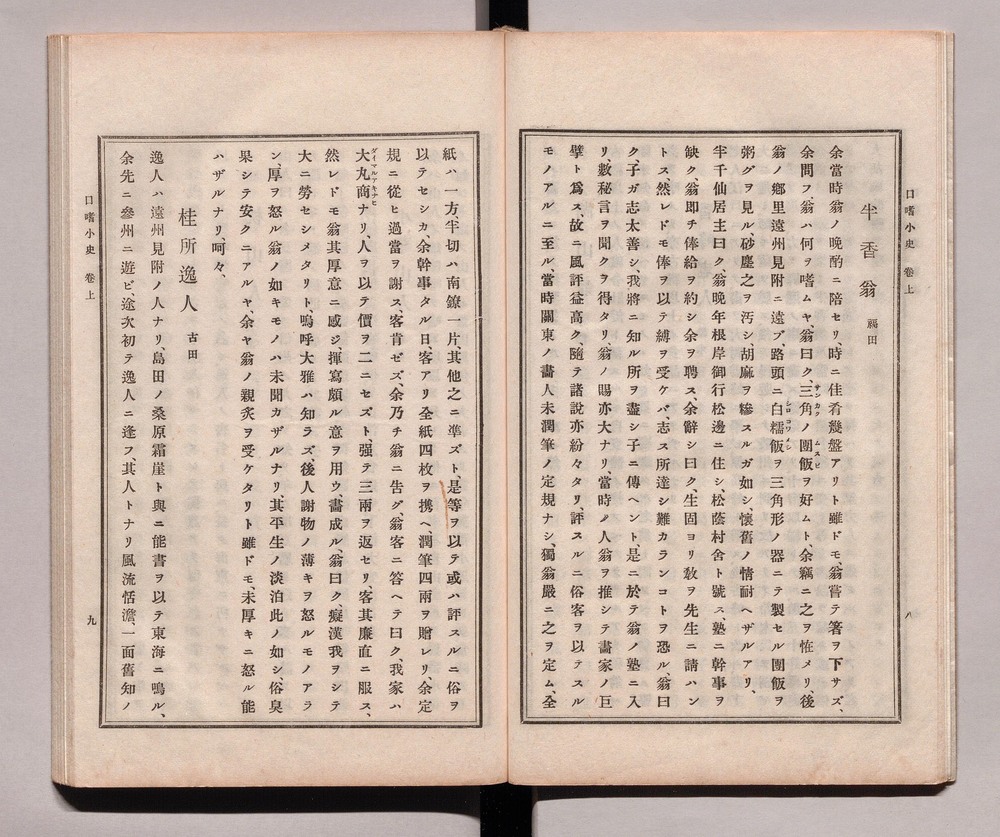 口嗜小史 卷上
八
半香翁 福田
余當時翁ノ晩酌ニ陪セリ、時ニ佳肴幾盤アリト雖ドモ、翁嘗テ箸ヲ下サズ、
余間フ、翁ハ何ヲ嗜ムヤ、翁曰ク、三角ノ團飯ヲ好ムト、余竊ニ之ヲ恠メリ、後
翁ノ鄕里遠州見附ニ遠プ、路頭ニ白糯飯ヲ三角形ノ器ニテ製セル團飯ヲ
粥グヲ見ル、砂塵之ヲ汚シ、胡麻ヲ糝スルガ如シ、懷舊ノ情耐ヘザルアリ、
半千仙居主曰ク、翁晩年根岸御行松邊ニ住シ、松蔭村舍ト號ス、塾ニ幹事ヲ
缺ク、翁即チ俸給ヲ約シ余ヲ聘ス、余辭シ曰ク、生固ヨリ敎ヲ先生ニ請ハン
トス、然レドモ俸ヲ以テ縛ヲ受ケバ、志ス所達シ難カランコトヲ恐ル、翁曰
ク、子ガ志太善シ、我將ニ知ル所ヲ盡シ子ニ傳ヘント、是ニ於テ翁ノ塾ニ入
リ、數秘言ヲ聞クヲ得タリ、翁ノ賜亦大ナリ、當時ノ人翁ヲ推シテ畫家ノ巨
擘ト爲ス、故ニ風評益高ク、隨テ諸說亦紛々タリ、評スルニ俗客ヲ以テスル
モノアルニ至ル、當時關東ノ畫人未潤筆ノ定規ナシ、獨翁嚴ニ之ヲ定ム、全
紙ハ一方、半切ハ南鐐一片、其他之ニ準ズト、是等ヲ以テ或ハ評スルニ俗ヲ
以テセシカ、余幹事タル日客アリ全紙四枚ヲ携ヘ、潤筆四兩ヲ贈レリ、余定
規ニ從ヒ過當ヲ謝ス、客肯ゼズ、余乃チ翁ニ告グ、翁客ニ答ヘテ曰ク、我家ハ
大丸商ナリ、人ヲ以テ價ヲ二ニセズト、强テ三兩ヲ返セリ、客其廉直ニ服ス、
然レドモ翁其厚意ニ感ジ、揮寫頗ル意ヲ用ウ畵成ル、翁曰ク、癡漢我ヲシテ
大ニ勞セシメタリト、嗚呼大雅ハ知ラズ、後人謝物ノ薄キヲ怒ルモノアラ
ン、厚ヲ怒ル翁ノ如キモノハ未聞カザルナリ、其平生ノ淡泊此ノ如シ、俗臭
果シテ安クニアルヤ、余ヤ翁ノ親炙ヲ受ケタリト雖ドモ、未厚キニ怒ル能
ハザルナリ、呵々、
桂所逸人 古田
逸人ハ遠州見附ノ人ナリ、島田ノ桑原霜崖ト與ニ能書ヲ以テ東海ニ鳴ル、
余先ニ參州ニ遊ビ、途次初テ逸人ニ逢フ、其人トナリ風流恬澹、一面舊知ノ
口嗜小史 卷上
九